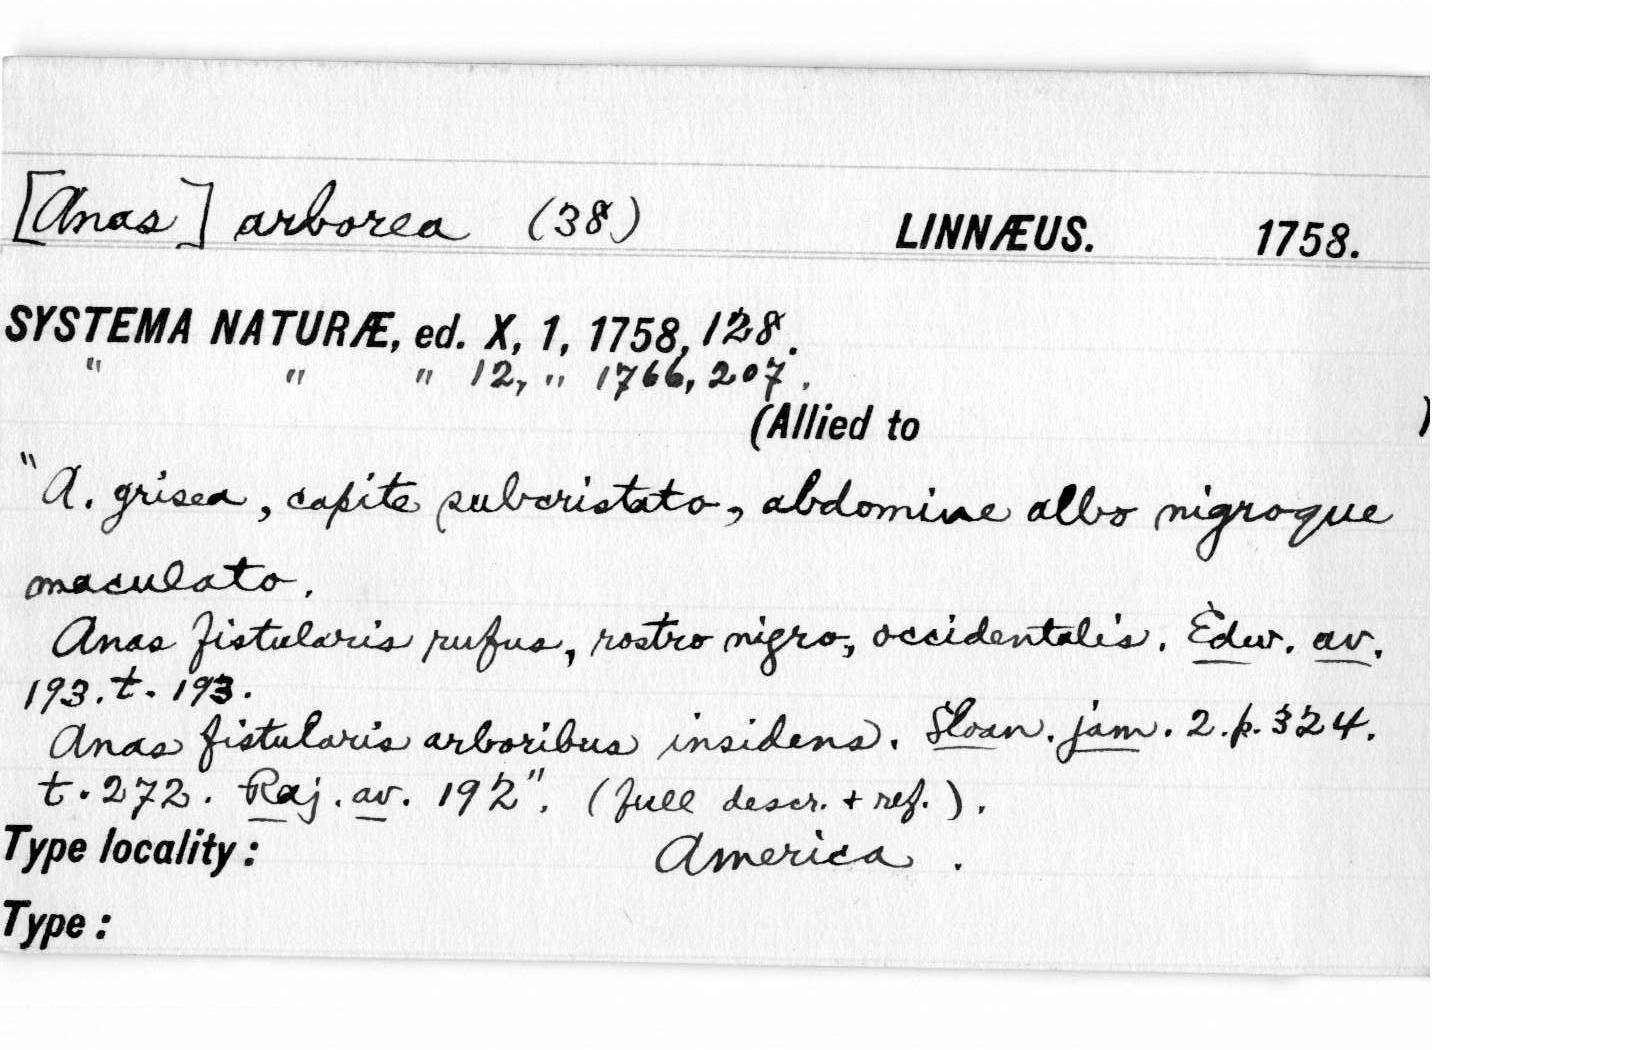 [Anas] arborea (38) LINNÆUS. 1758.
SYSTEMA NATURÆ, ed. X, 1, 1758, 128.
" " " 12, " 1766, 207.
(Allied to )
"A. grisea, capite subcristato, abdomine albo nigroque
maculato.
Anas fistularis rufus, rostro nigro, occidentalis. Edw. av.
193. t. 193.
Anas fistularis arboribus insidens. Sloan. jam. 2. p. 324.
t. 272. Raj. av. 192". (full descr. + ref.).
Type locality: America.
Type: